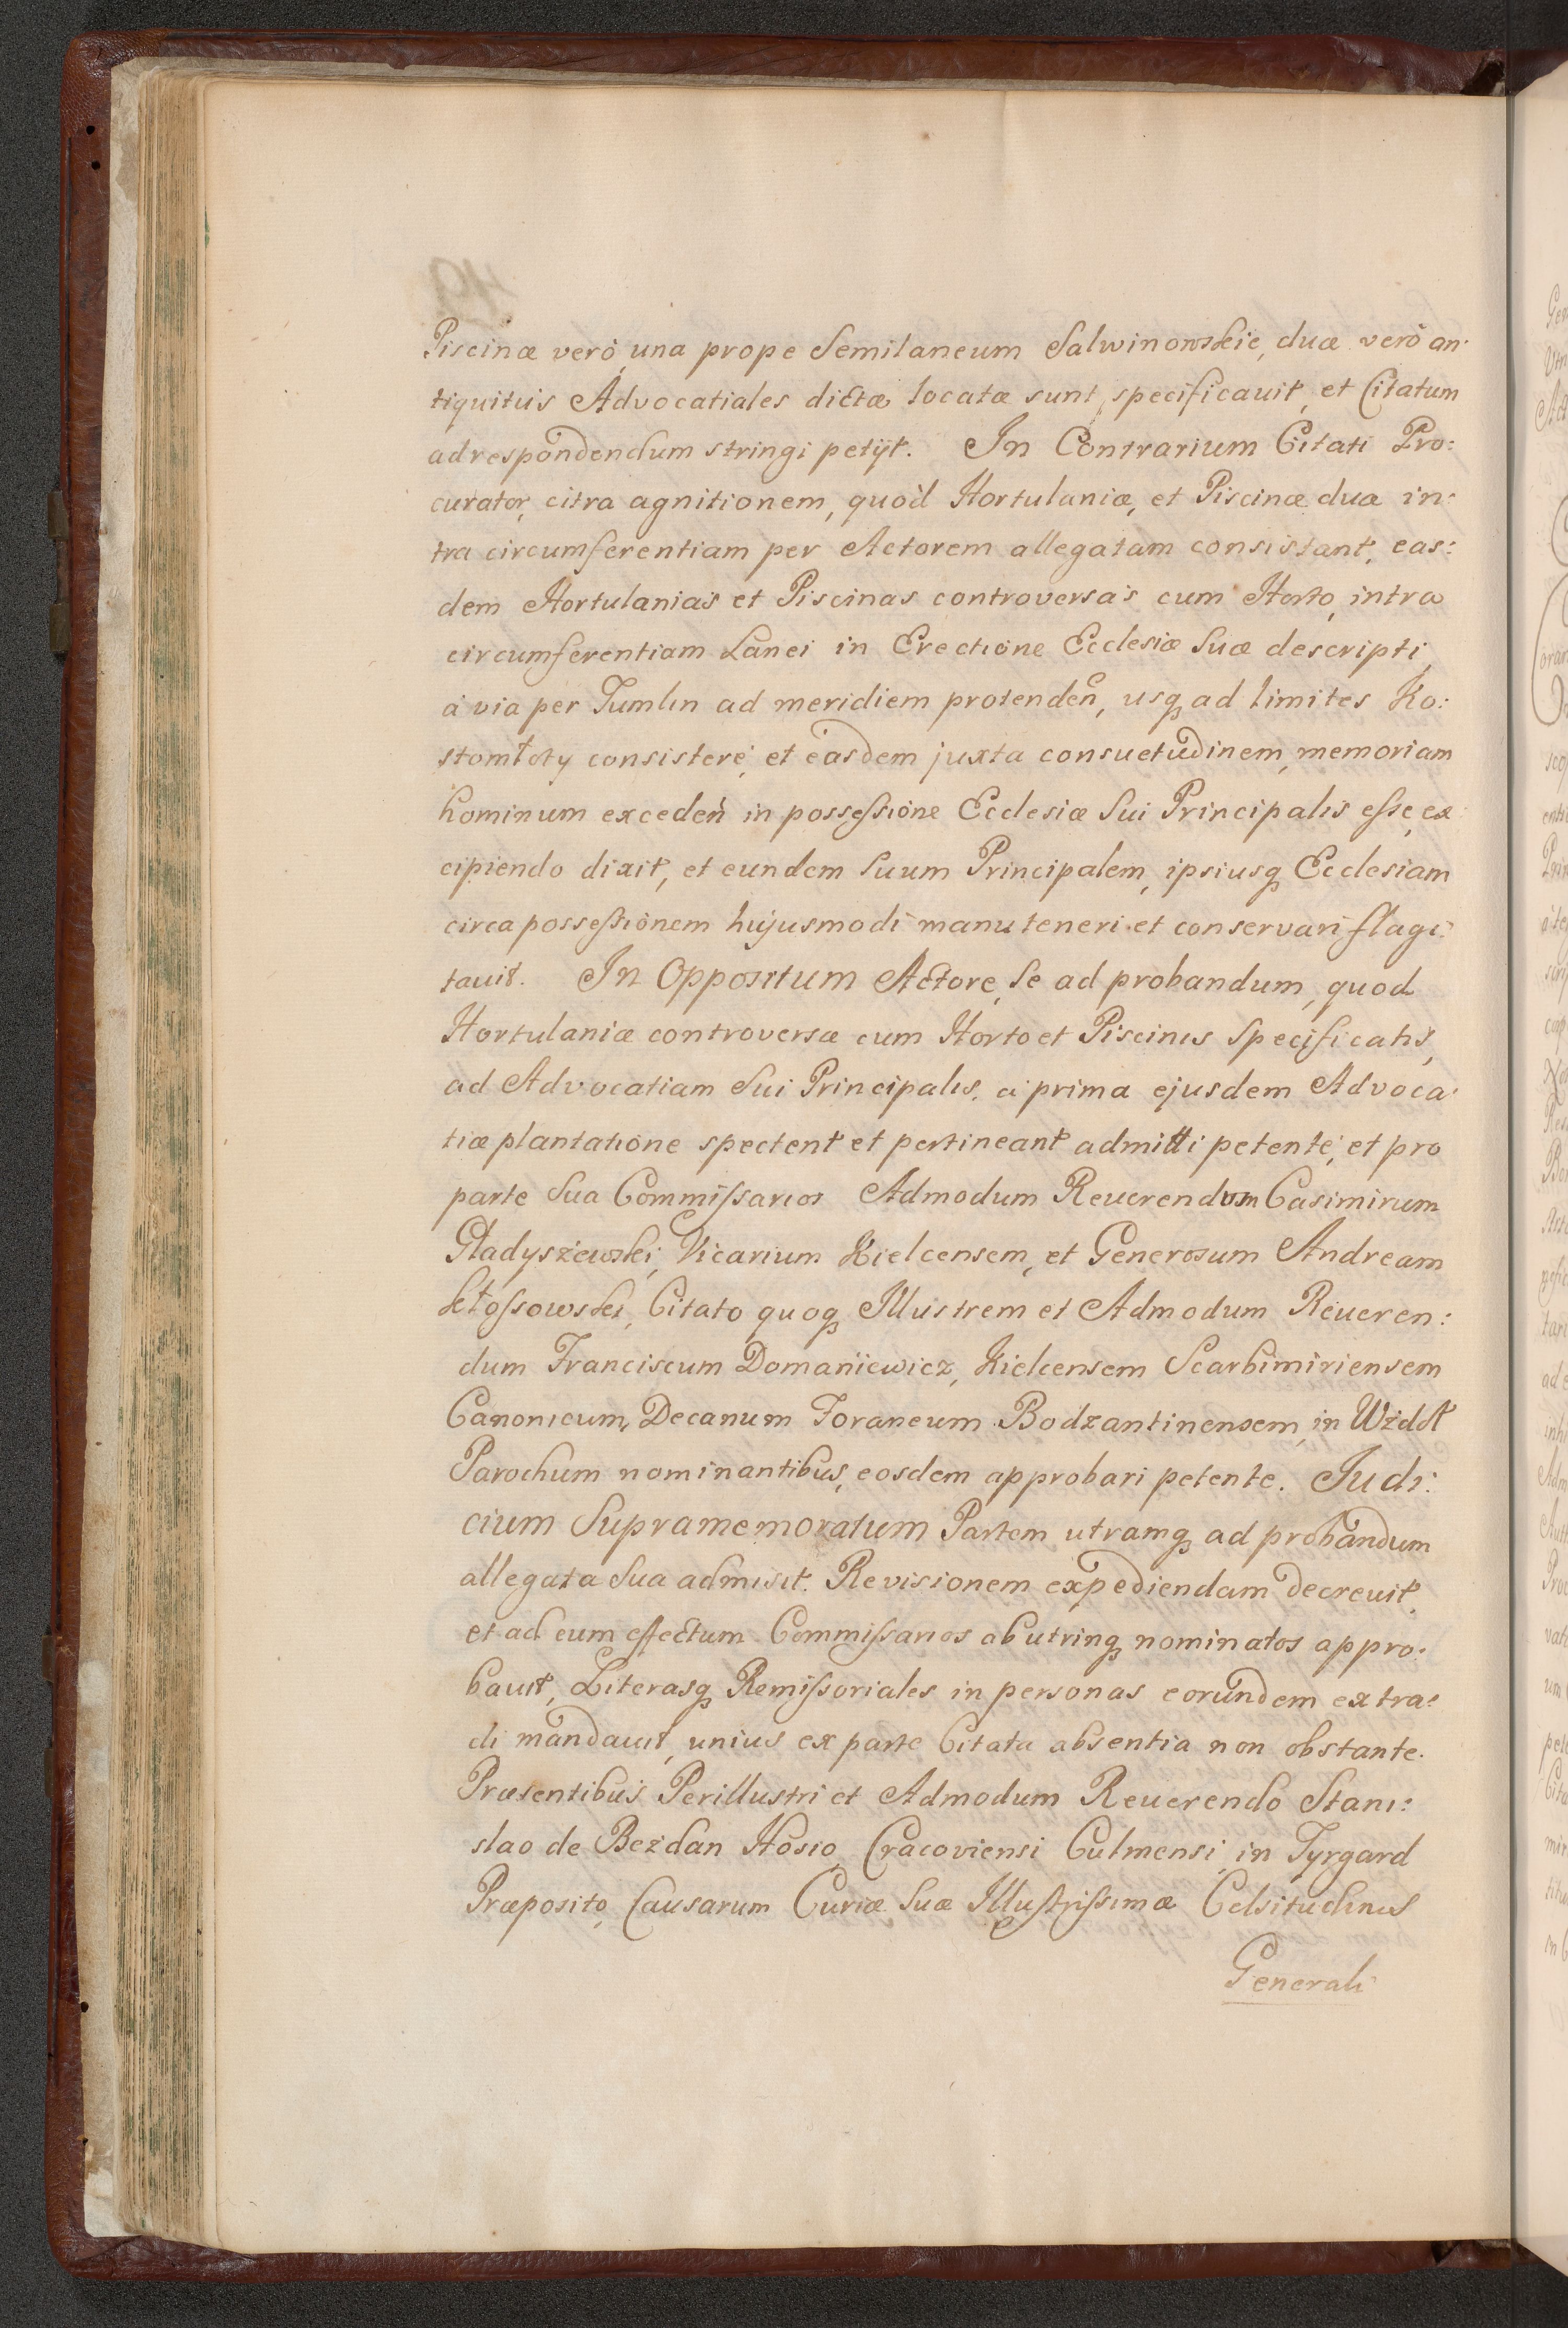 Piscinæ verò, una prope Semilaneum Salwinowskie, duæ verò an:
tiquitùs Advocatiales dictæ locatæ sunt, specificauit, et Citatum
ad respondendum stringi petijt. In Contrarium Citati Pro:
curator, citra agnitionem, quòd Hortulaniæ, et Piscinæ duæ in:
tra circumferentiam per Actorem allegatam consistant, eas:
dem Hortulanias et Piscinas controversas cum Horto, intra
circumferentiam Lanei in Erectione Ecclesiæ Suæ descripti,
à via per Tumlin ad meridiem protendeñ, usq ad limites Ko:
stomłoty consistere, et easdem juxta consuetudinem, memoriam
hominum excedeń in possessione Ecclesiæ Sui Principalis esse, ex:
cipiendo dixit, et eundem Suum Principalem, ipsiusq Ecclesiam
circa possessionem hujusmodi manuteneri et conservari flagi:
tauit. In Oppositum Actore, Se ad probandum, quod
Hortulaniæ controversæ cum Horto et Piscinis Specificatis,
ad Advocatiam Sui Principalis, à prima ejusdem Advoca:
tiæ plantatione spectent et pertineant admitti petente, et pro
parte Sua Commissarios Admodum Reuerendum Casimirum
Gładyszewski, Vicarium Kielcensem, et Generosum Andream
Kłossowski, Citato quoq Illustrem et Admodum Reueren:
dum Franciscum Domaniewicz, Kielcensem Scarbimiriensem
Canonicum, Decanum Foraneum Bodzantinensem, in Wzdół
Parochum nominantibus, eosdem approbari petente. Judi:
cium Supramemoratum Partem utramq ad probandum
allegata Sua admisit. Revisionem expediendam decreuit,
et ad eum effectum Commissarios ab utrinq nominatos appro:
bauit, Literasq Remissoriales in personas eorundem extra:
di mandauit, unius ex parte Citata absentia non obstante.
Præsentibus Perillustri et Admodum Reuerendo Stani:
slao de Bezdan Hosio, Cracoviensi Culmensi, in Tyrgard
Præposito, Causarum Curiæ Suæ Illustrissimæ Celsitudinis
Generali